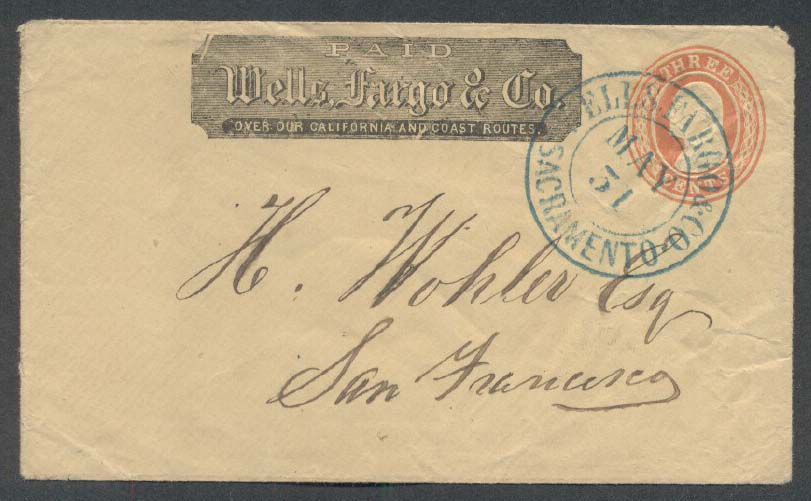 PAID
Wells, Fargo & Co.
OVER OUR CALIFORNIA AND COAST ROUTES.
THREE
CENTS
WELLS FARGO & CO
MAY
31
SACRAMENTO
H. Wohler Esq
San Francisco